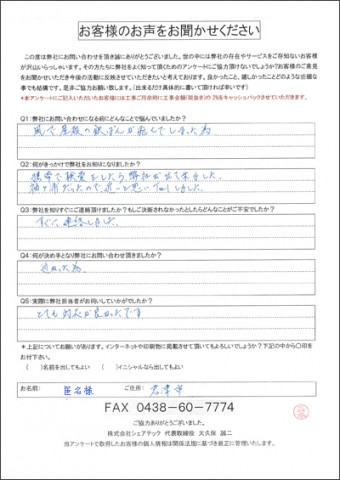 お客様のお声をお聞かせください
この度は弊社にお問い合わせを頂き誠にありがとうございました。世の中には弊社の存在やサービスをご存知ないお客様
が沢山いらっしゃいます。その方たちに弊社をよく知って頂くためのアンケートにご協力頂けないでしょうか?お客様のご意見
をお聞かせいただき今後の活動に反映させていただきたいと考えております。良かったこと、嬉しかったことどのような些細な
事でも結構です。是非ご協力お願い致します。(出来るだけ具体的に書いて頂ければ幸いです)
*本アンケートにご記入いただいたお客様には工事ご用命時に工事金額(税抜き)の2%をキャッシュバックさせていただきます。
Q1:弊社をお問い合わせになる前にどんなことで悩んでいましたか?
風で屋根の鉄ぱんが飛んでしまった為
Q2:何がきっかけで弊社をお知りになりましたか?
携帯で検索をしたら弊社が出て来ました
袖ヶ浦だったので近いと思いTelしました
Q3:弊社を知りすぐにご連絡頂けましたか?もしご決断されなかったとしたらどんなことがご不安でしたか?
すぐに連絡しました
Q4:何が決め手となり弊社にお問い合わせ頂きましたか?
近かった為
Q5:実際に弊社担当者がお伺いしていかがでしたか?
とても対応が良かったです
*上記についてお願いがあります。インターネットや印刷物に掲載させて頂いてもよろしいでしょうか?下記の中から〇印を
お付下さい。
( )名前を出してもよい ( )イニシャルなら出してもよい
お名前: 匿名様 ご住所: 君津市
FAX 0438-60-7774
ご協力ありがとうございました。
株式会社シェアテック 代表取締役 大久保 誠二
当アンケートで取得したお客様の個人情報は関係法規に基づき厳正に管理いたします。